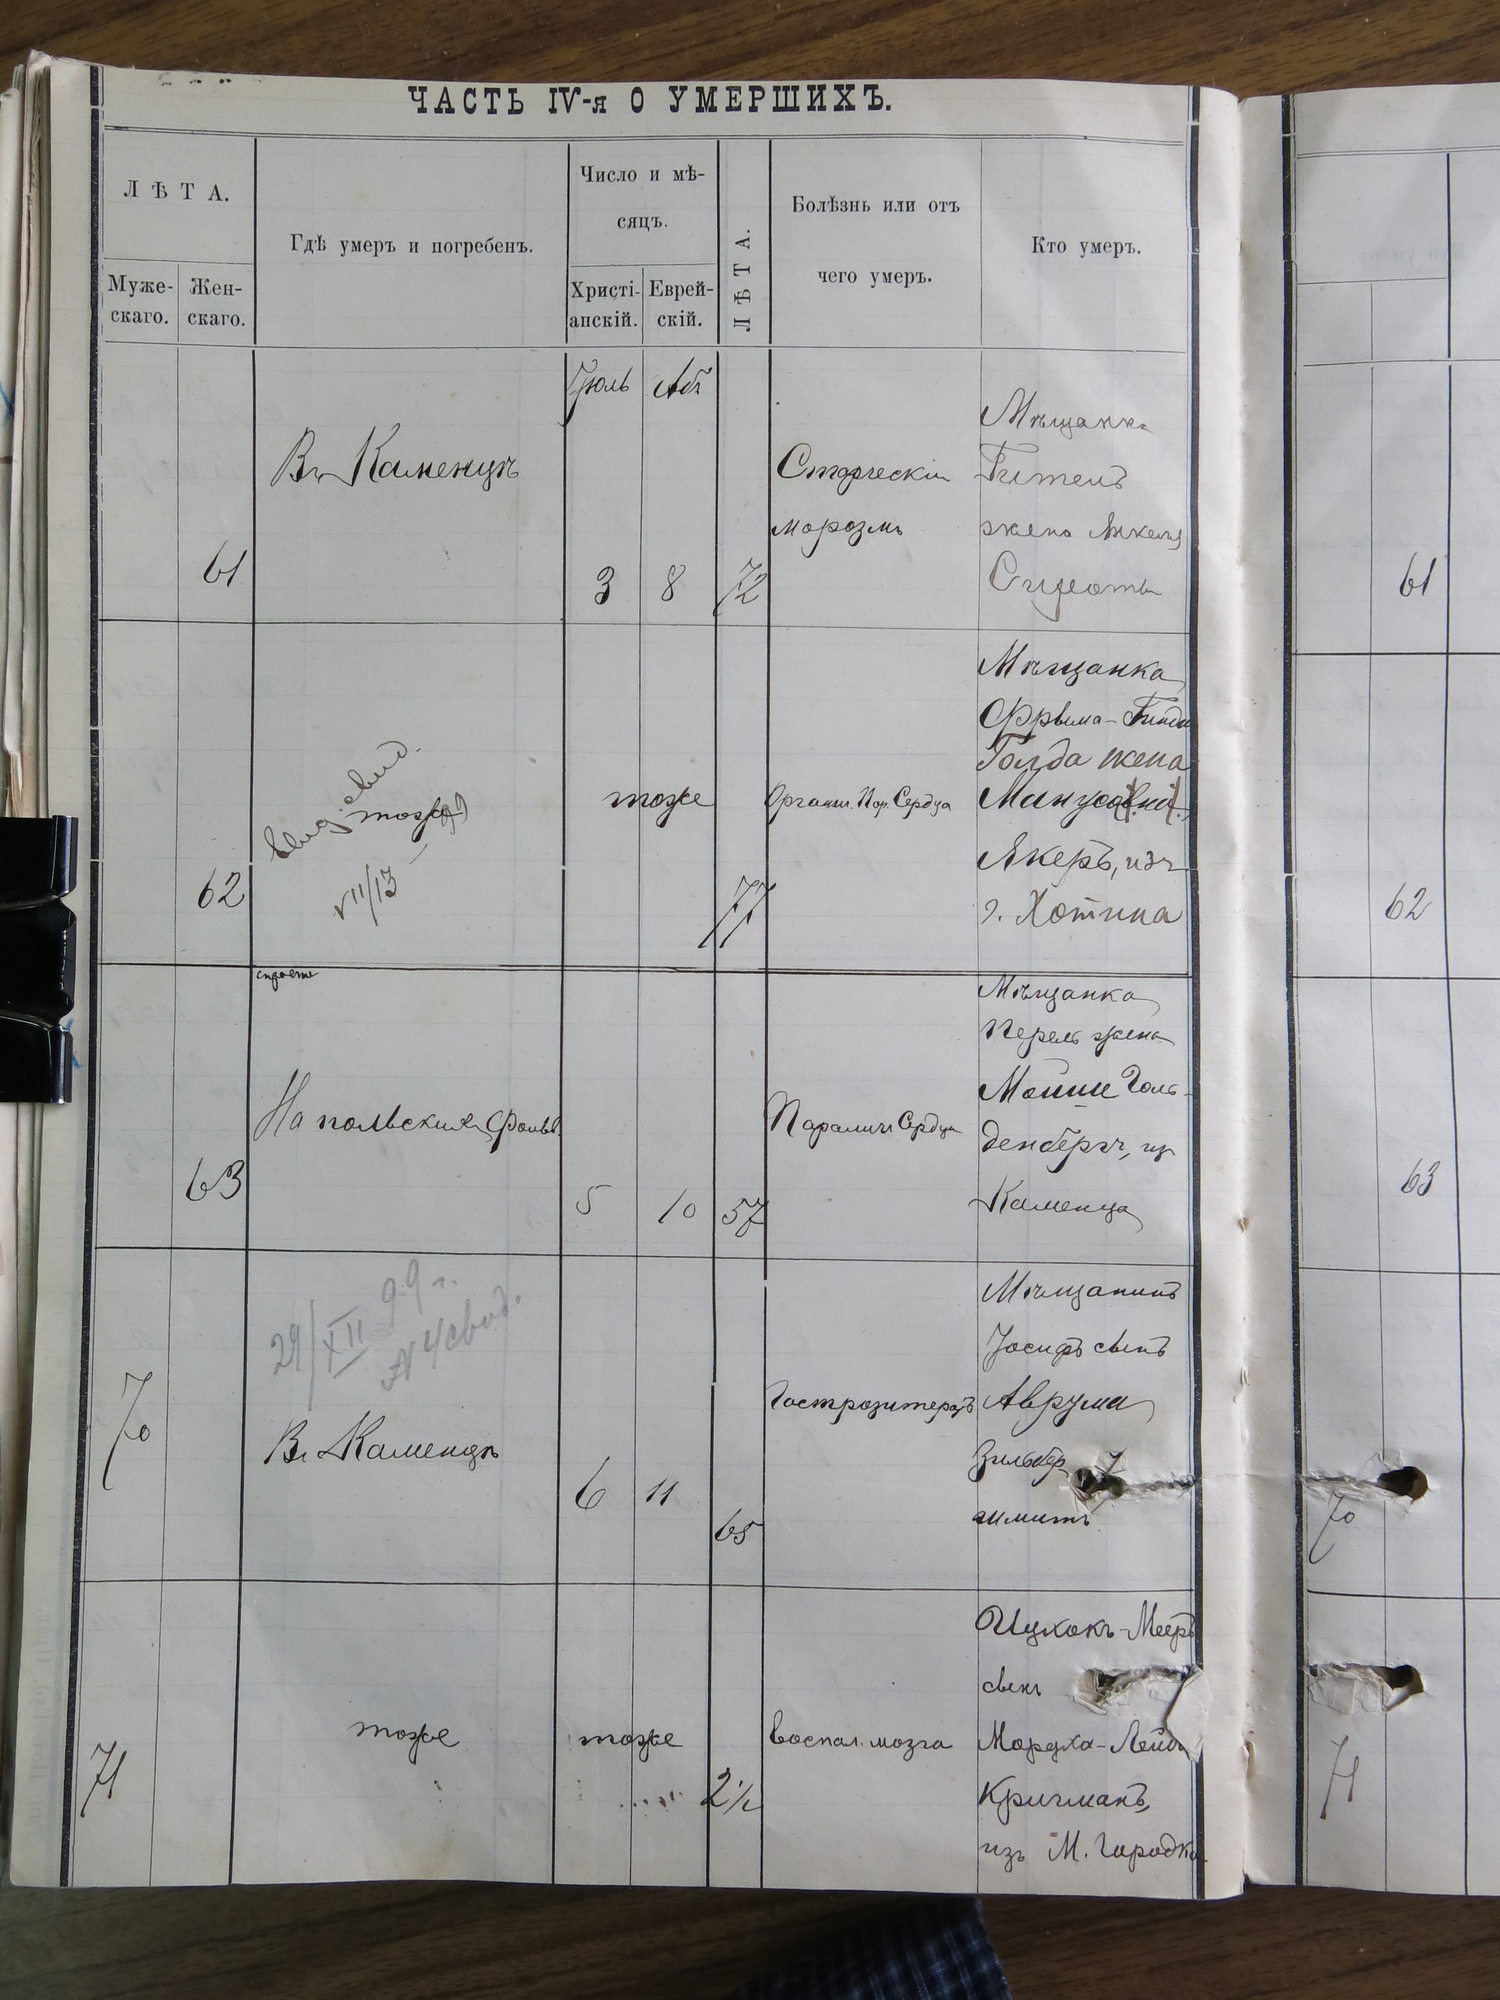 ЧАСТЬ IV-я О УМЕРШИХЪ.
ЛѢТА.
Муже-
скаго.
Жен-
скаго.
Гдѣ умеръ и погребенъ.
Число и мѣ-
сяцъ.
Христі-
анскій.
Еврей-
скій.
ЛѢТА.
Болѣзнь или отъ
чего умеръ.
Кто умеръ.
Іюль
Абъ
61
Въ Каменцѣ
3
8
72
Старческій
моразмъ
Мѣщанка
Гитель
жена Янкеля
Сироты
61
62
тоже
VII/13
тоже
77
Органич. Пор. Сердца
Мѣщанка
Фрыма-Гинда
Голда жена
Мануса
Якеръ, изъ
г. Хотина
62
63
На польскихъ фольв.
5
10
57
Параличъ Сердца
Мѣщанка
Перель жена
Мошки Голь-
денбергъ, из
Каменца
63
29/XII 99 г.
№ 4 свид.
70
Въ Каменцѣ
6
11
65
Гостроэнтеритъ
Мѣщанинъ
Іосифъ сынъ
Аврума
Зильбер
шмитъ
70
71
тоже
тоже
2½
Воспал. мозга
Ицхокъ-Мееръ
сынъ
Мордха-Лейбы
Кричманъ,
изъ М. Городка
71